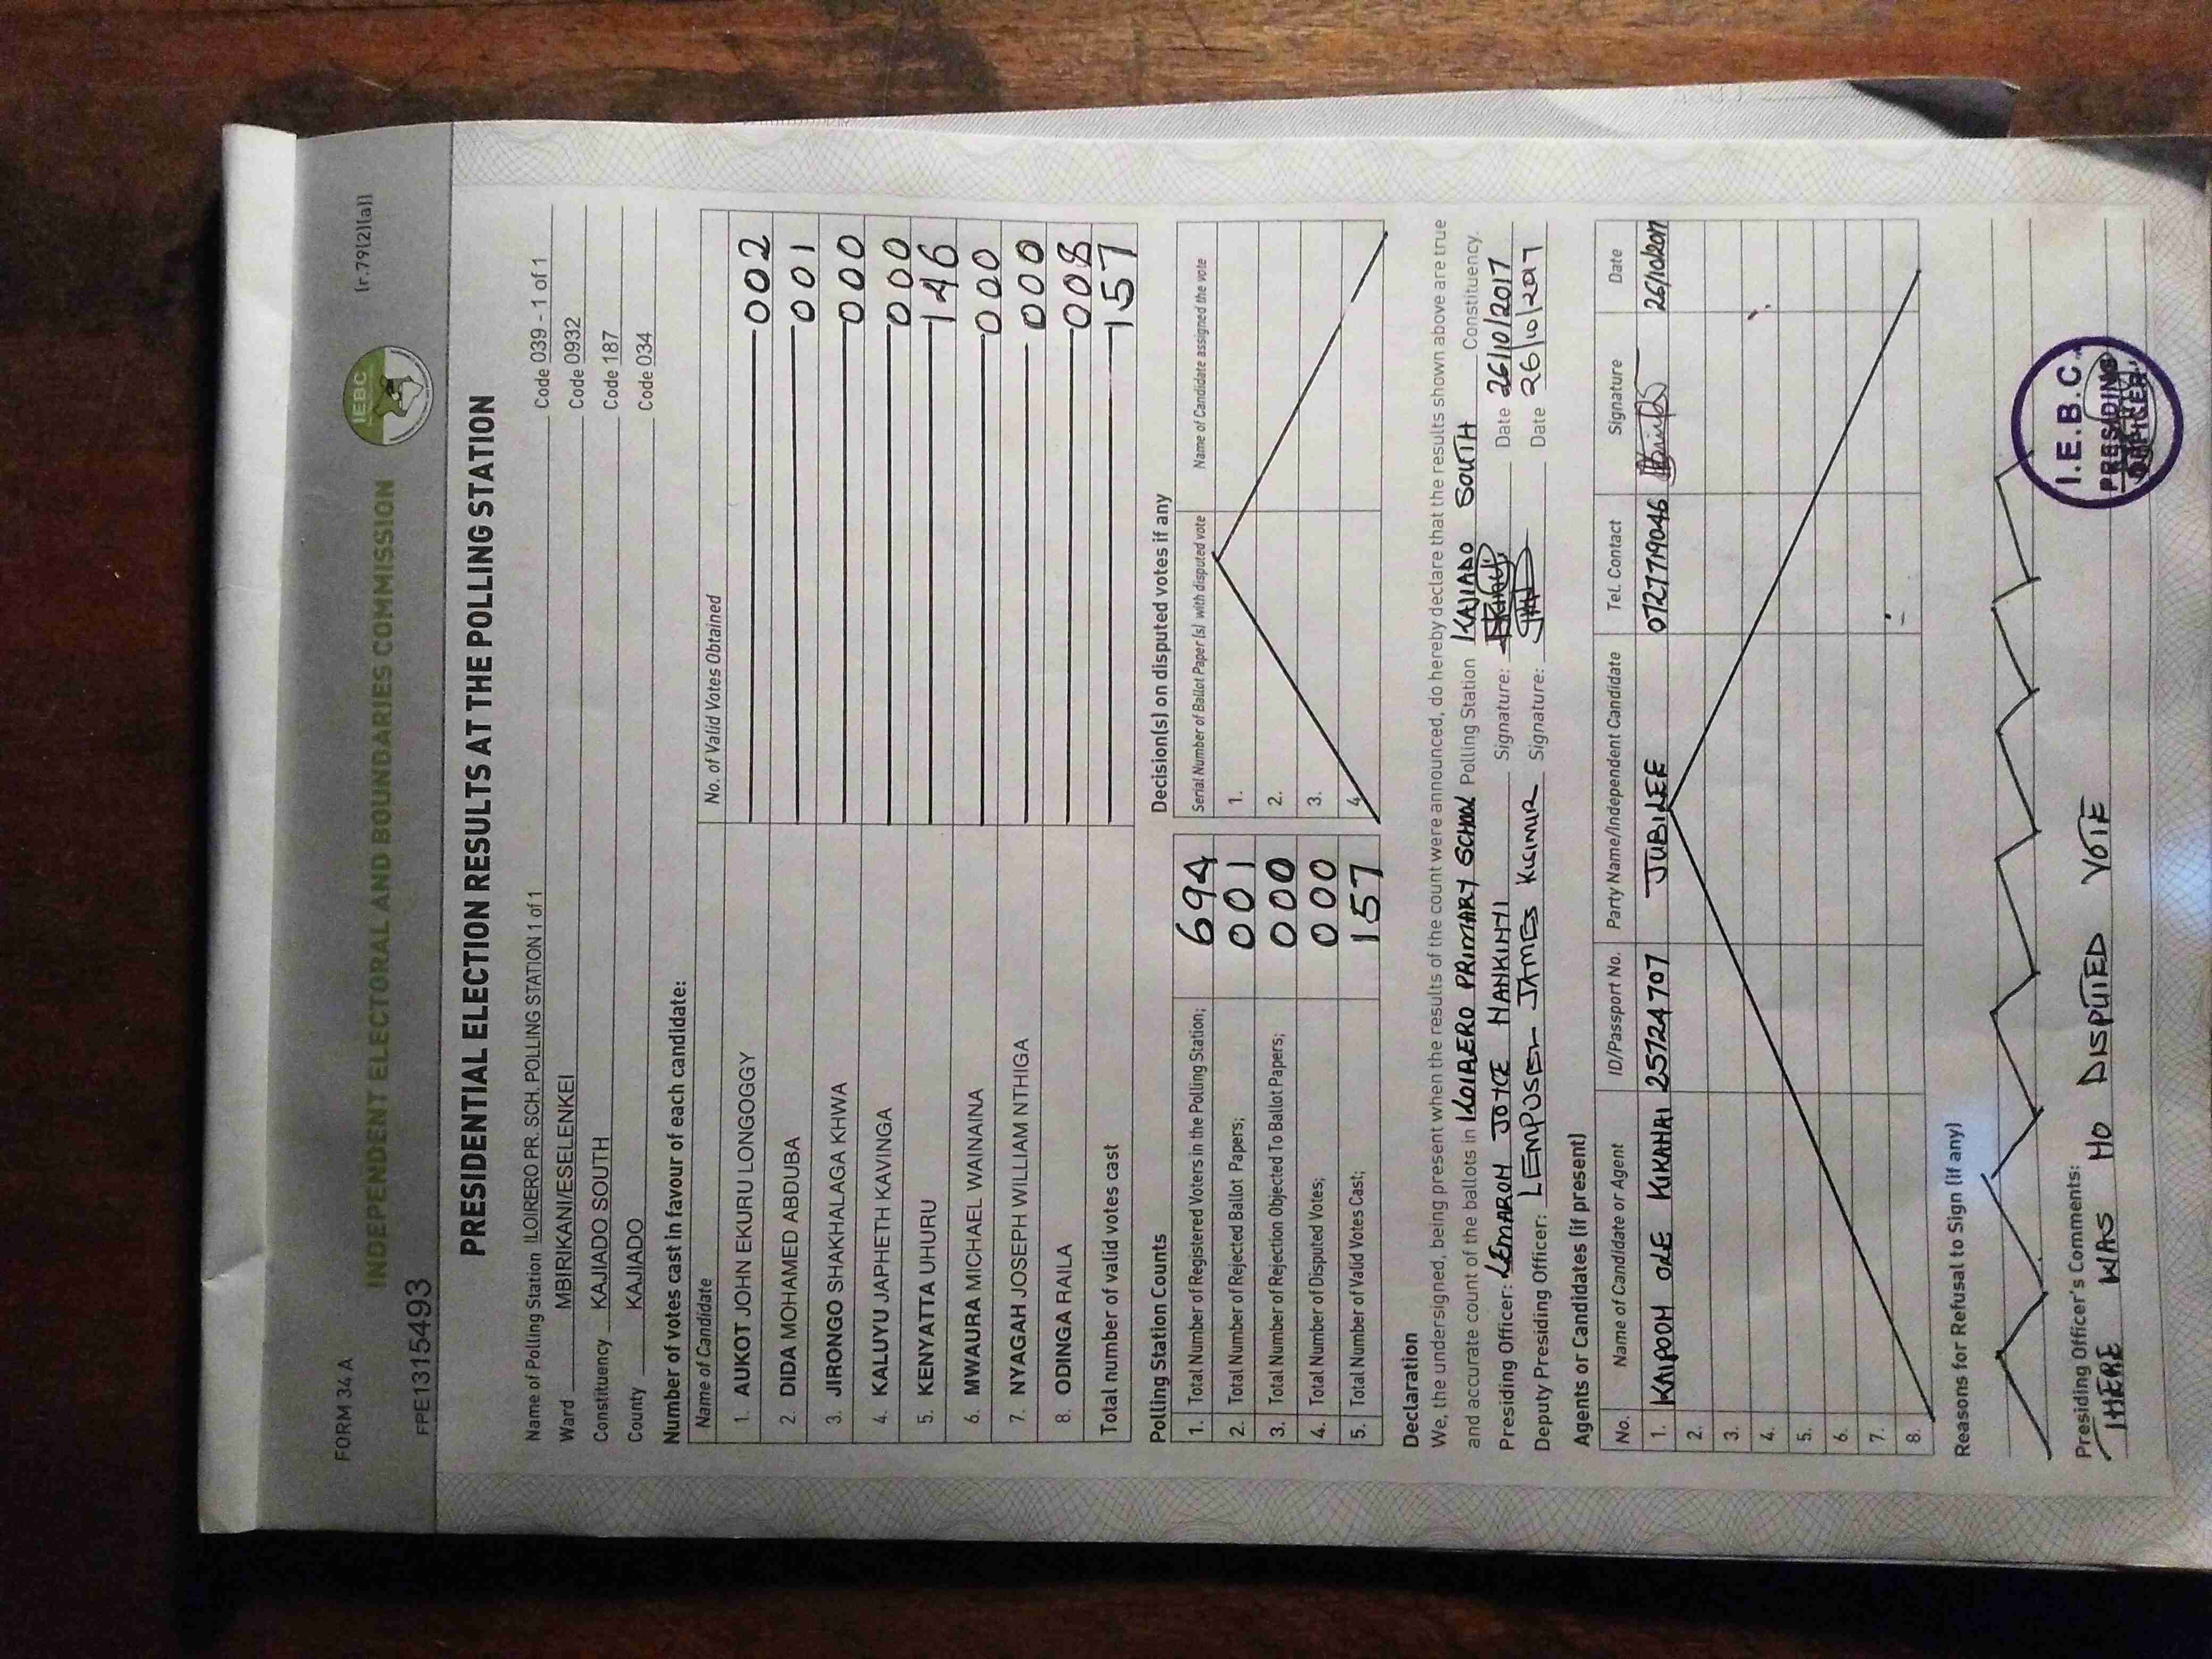 FORM 34 A
(r.79(2)(a))
IEBC
INDEPENDENT ELECTORAL AND BOUNDARIES COMMISSION
FPE1315493
PRESIDENTIAL ELECTION RESULTS AT THE POLLING STATION
Name of Polling Station ILOIRERO PR. SCH. POLLING STATION 1 of 1 Code 039 - 1 of 1
Ward MBIRIKANI/ESELENKEI Code 0932
Constituency KAJIADO SOUTH Code 187
County KAJIADO Code 034
Number of votes cast in favour of each candidate:
Name of Candidate No. of Valid Votes Obtained
1. AUKOT JOHN EKURU LONGOGGY 002
2. DIDA MOHAMED ABDUBA 001
3. JIRONGO SHAKHALAGA KHWA 000
4. KALUYU JAPHETH KAVINGA 000
5. KENYATTA UHURU 146
6. MWAURA MICHAEL WAINAINA 000
7. NYAGAH JOSEPH WILLIAM NTHIGA 000
8. ODINGA RAILA 008
Total number of valid votes cast 157
Polling Station Counts
1. Total Number of Registered Voters in the Polling Station; 694
2. Total Number of Rejected Ballot Papers; 001
3. Total Number of Rejection Objected To Ballot Papers; 000
4. Total Number of Disputed Votes; 000
5. Total Number of Valid Votes Cast; 157
Decision(s) on disputed votes if any
Serial Number of Ballot Paper (s) with disputed vote Name of Candidate assigned the vote
1.
2.
3.
4.
Declaration
We, the undersigned, being present when the results of the count were announced, do hereby declare that the results shown above are true
and accurate count of the ballots in PRIMARY SCHOOL Polling Station KAJIADO SOUTH Constituency.
Presiding Officer: LEMARON JOYCE NANKINYI Signature: Date 26/10/2017
Deputy Presiding Officer: LEMPUSEL JAMES KISIMIR Signature: Date 26/10/2017
Agents or Candidates (if present)
No. Name of Candidate or Agent ID/Passport No. Party Name/Independent Candidate Tel. Contact Signature Date
1. KAPOOH OLE KIKANAI 25724707 JUBILEE 0727719046 26/10/2017
2.
3.
4.
5.
6.
7.
8.
Reasons for Refusal to Sign (if any)
Presiding Officer's Comments:
THERE WAS NO DISPUTED VOTE
I.E.B.C.
PRESIDING
OFFICER